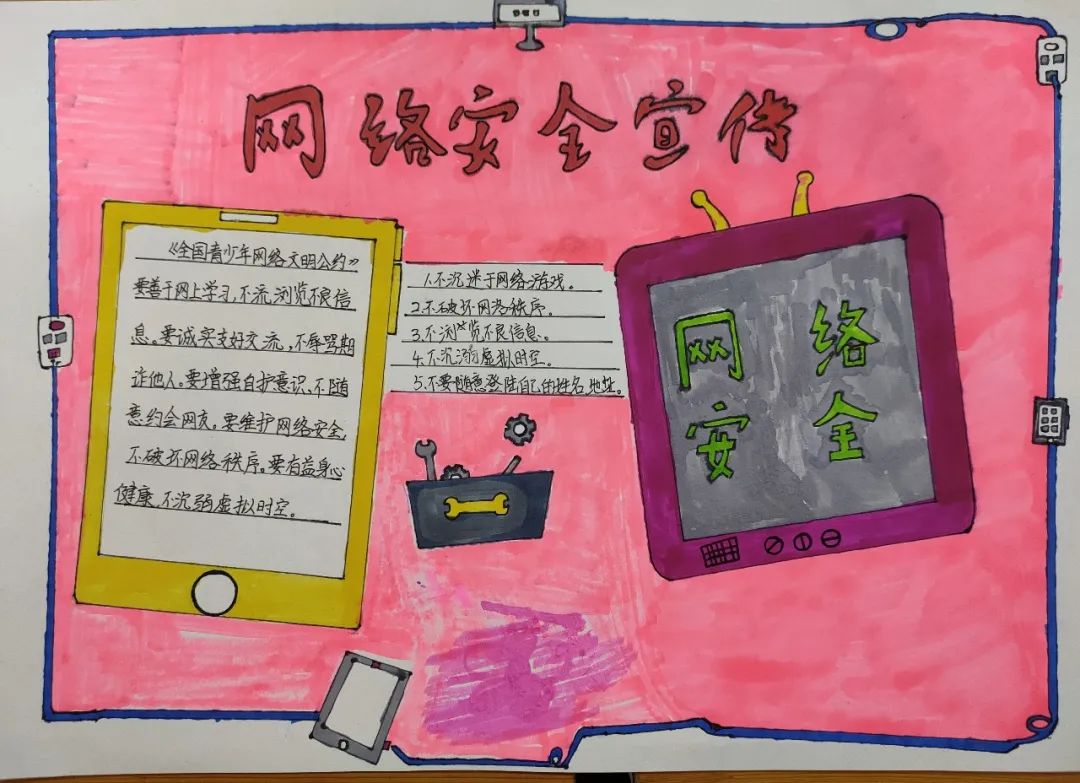 网络安全宣传
《全国青少年网络文明公约》
要善于网上学习，不流浏览不良信
息。要诚实支好交流，不辱骂期
诈他人。要增强自护意识，不随
意约会网友。要维护网络安全，
不破坏网络秩序。要有益身心
健康，不沉弱虚拟时空。
1.不沉迷于网络游戏。
2.不破坏网络秩序。
3.不浏览不良信息。
4.不沉溺虚拟时空。
5.不要随意登陆自己的姓名,地址。
网络
安全